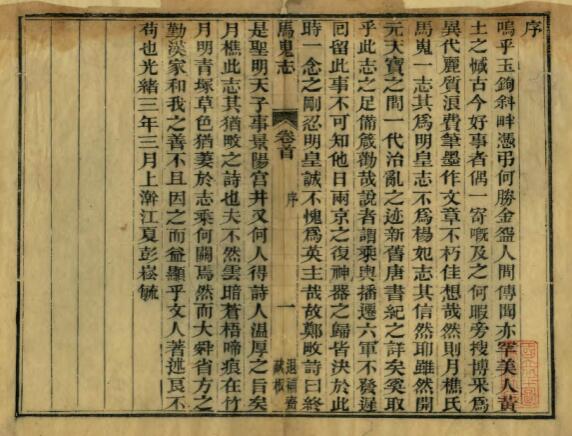 序
嗚乎玉鉤斜畔憑弔何勝金盌人間傳聞亦罕美人黃
土之憾古今好事者偶一寄嘅及之何暇旁搜博采爲
異代麗質浪費筆墨作文章不朽佳想哉然則月樵氏
馬嵬一志其爲明皇志不爲楊妃志其信然耶雖然開
元天寶之間一代治亂之迹新舊唐書紀之詳矣奚取
乎此志之足備箴勸哉說者謂乘輿播遷六軍不發遲
回留此事不可知他日兩京之復神器之歸皆決於此
時一念之剛忍明皇誠不愧爲英主哉故鄭畋詩曰終
馬嵬志
卷首
序
一
是聖明天子事景陽宮井又何人得詩人溫厚之旨矣
月樵此志其猶畋之詩也夫不然雲暗蒼梧啼痕在竹
月明青塚草色猶萋於志乘何關焉然而大舜省方之
勤漢家和我之善不且因之而益顯乎文人著述良不
苟也光緒三年三月上澣江夏彭崧毓